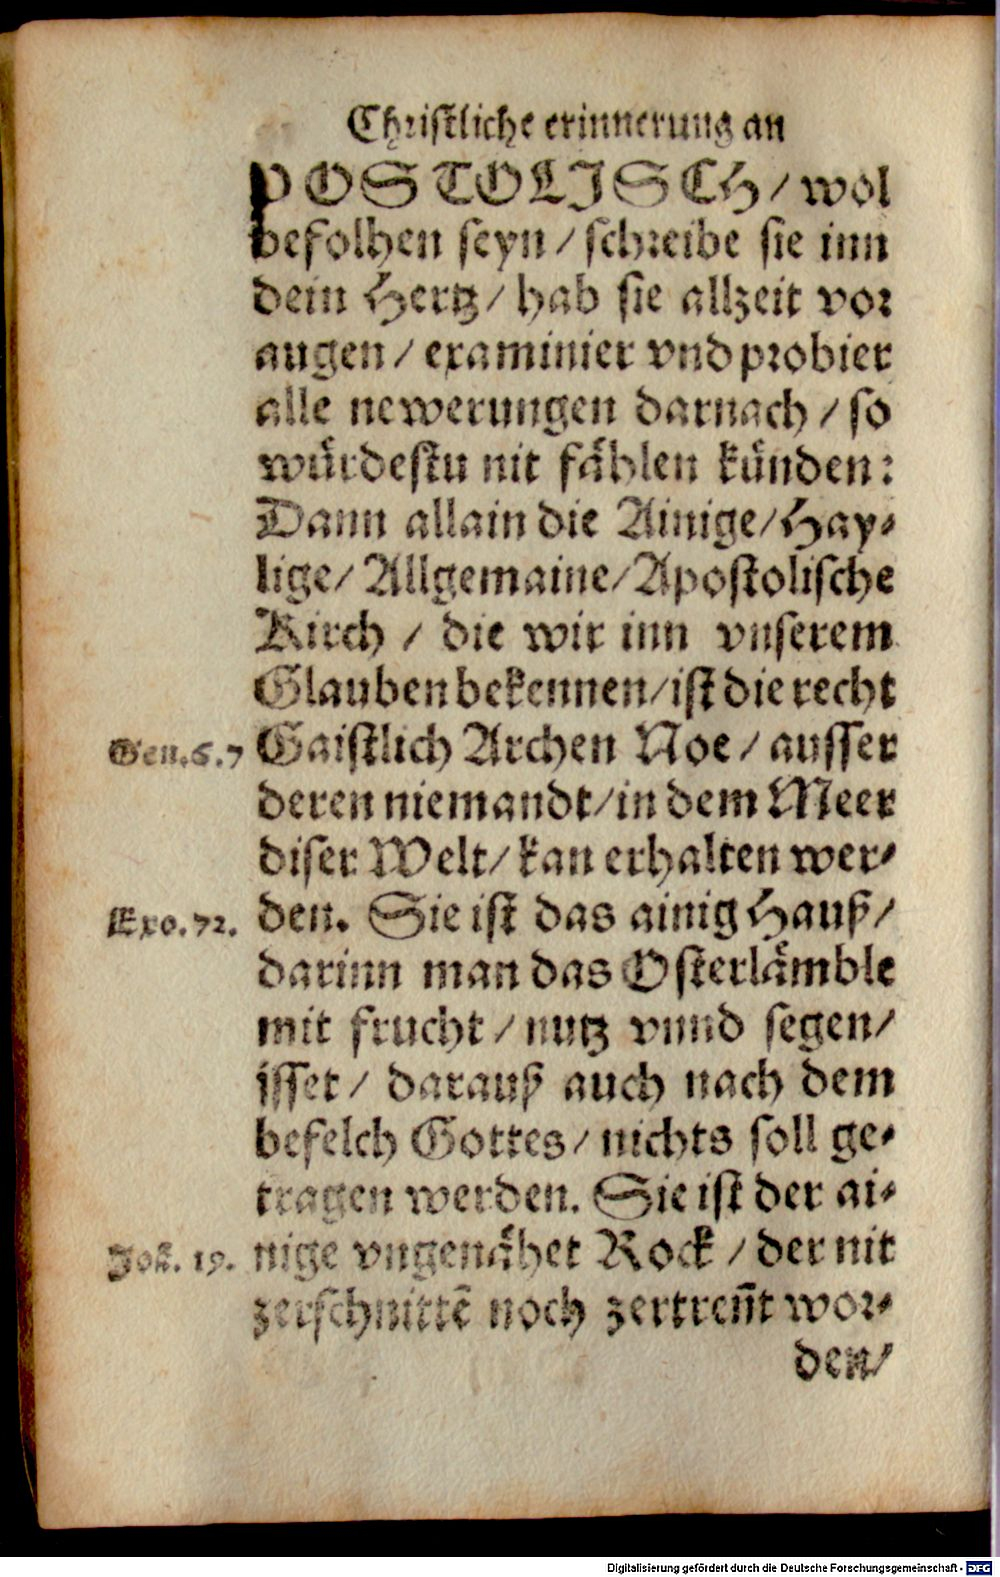 Christliche erinnerung an
POSTOLISCH / wol
befolhen seyn / schreibe sie inn
dein Hertz / hab sie allzeit vor
augen / examinier vnd probier
alle newerungen darnach / so
würdestu nit fählen künden:
Dann allain die Ainige / Hay-
lige / Allgemaine / Apostolische
Kirch / die wir inn vnserem
Glauben bekennen / ist die recht
Gen. 6. 7 Gaistlich Archen Noe / ausser
deren niemandt / in dem Meer
diser Welt / kan erhalten wer-
Exo. 72. den. Sie ist das ainig Hauß /
darinn man das Osterlämble
mit frucht / nutz vnnd segen /
isset / darauß auch nach dem
befelch Gottes / nichts soll ge-
tragen werden. Sie ist der ai-
Joh. 19. nige vngenähet Rock / der nit
zerschnittē noch zertreñt wor-
den /
Digitalisierung gefördert durch die Deutsche Forschungsgemeinschaft - DFG